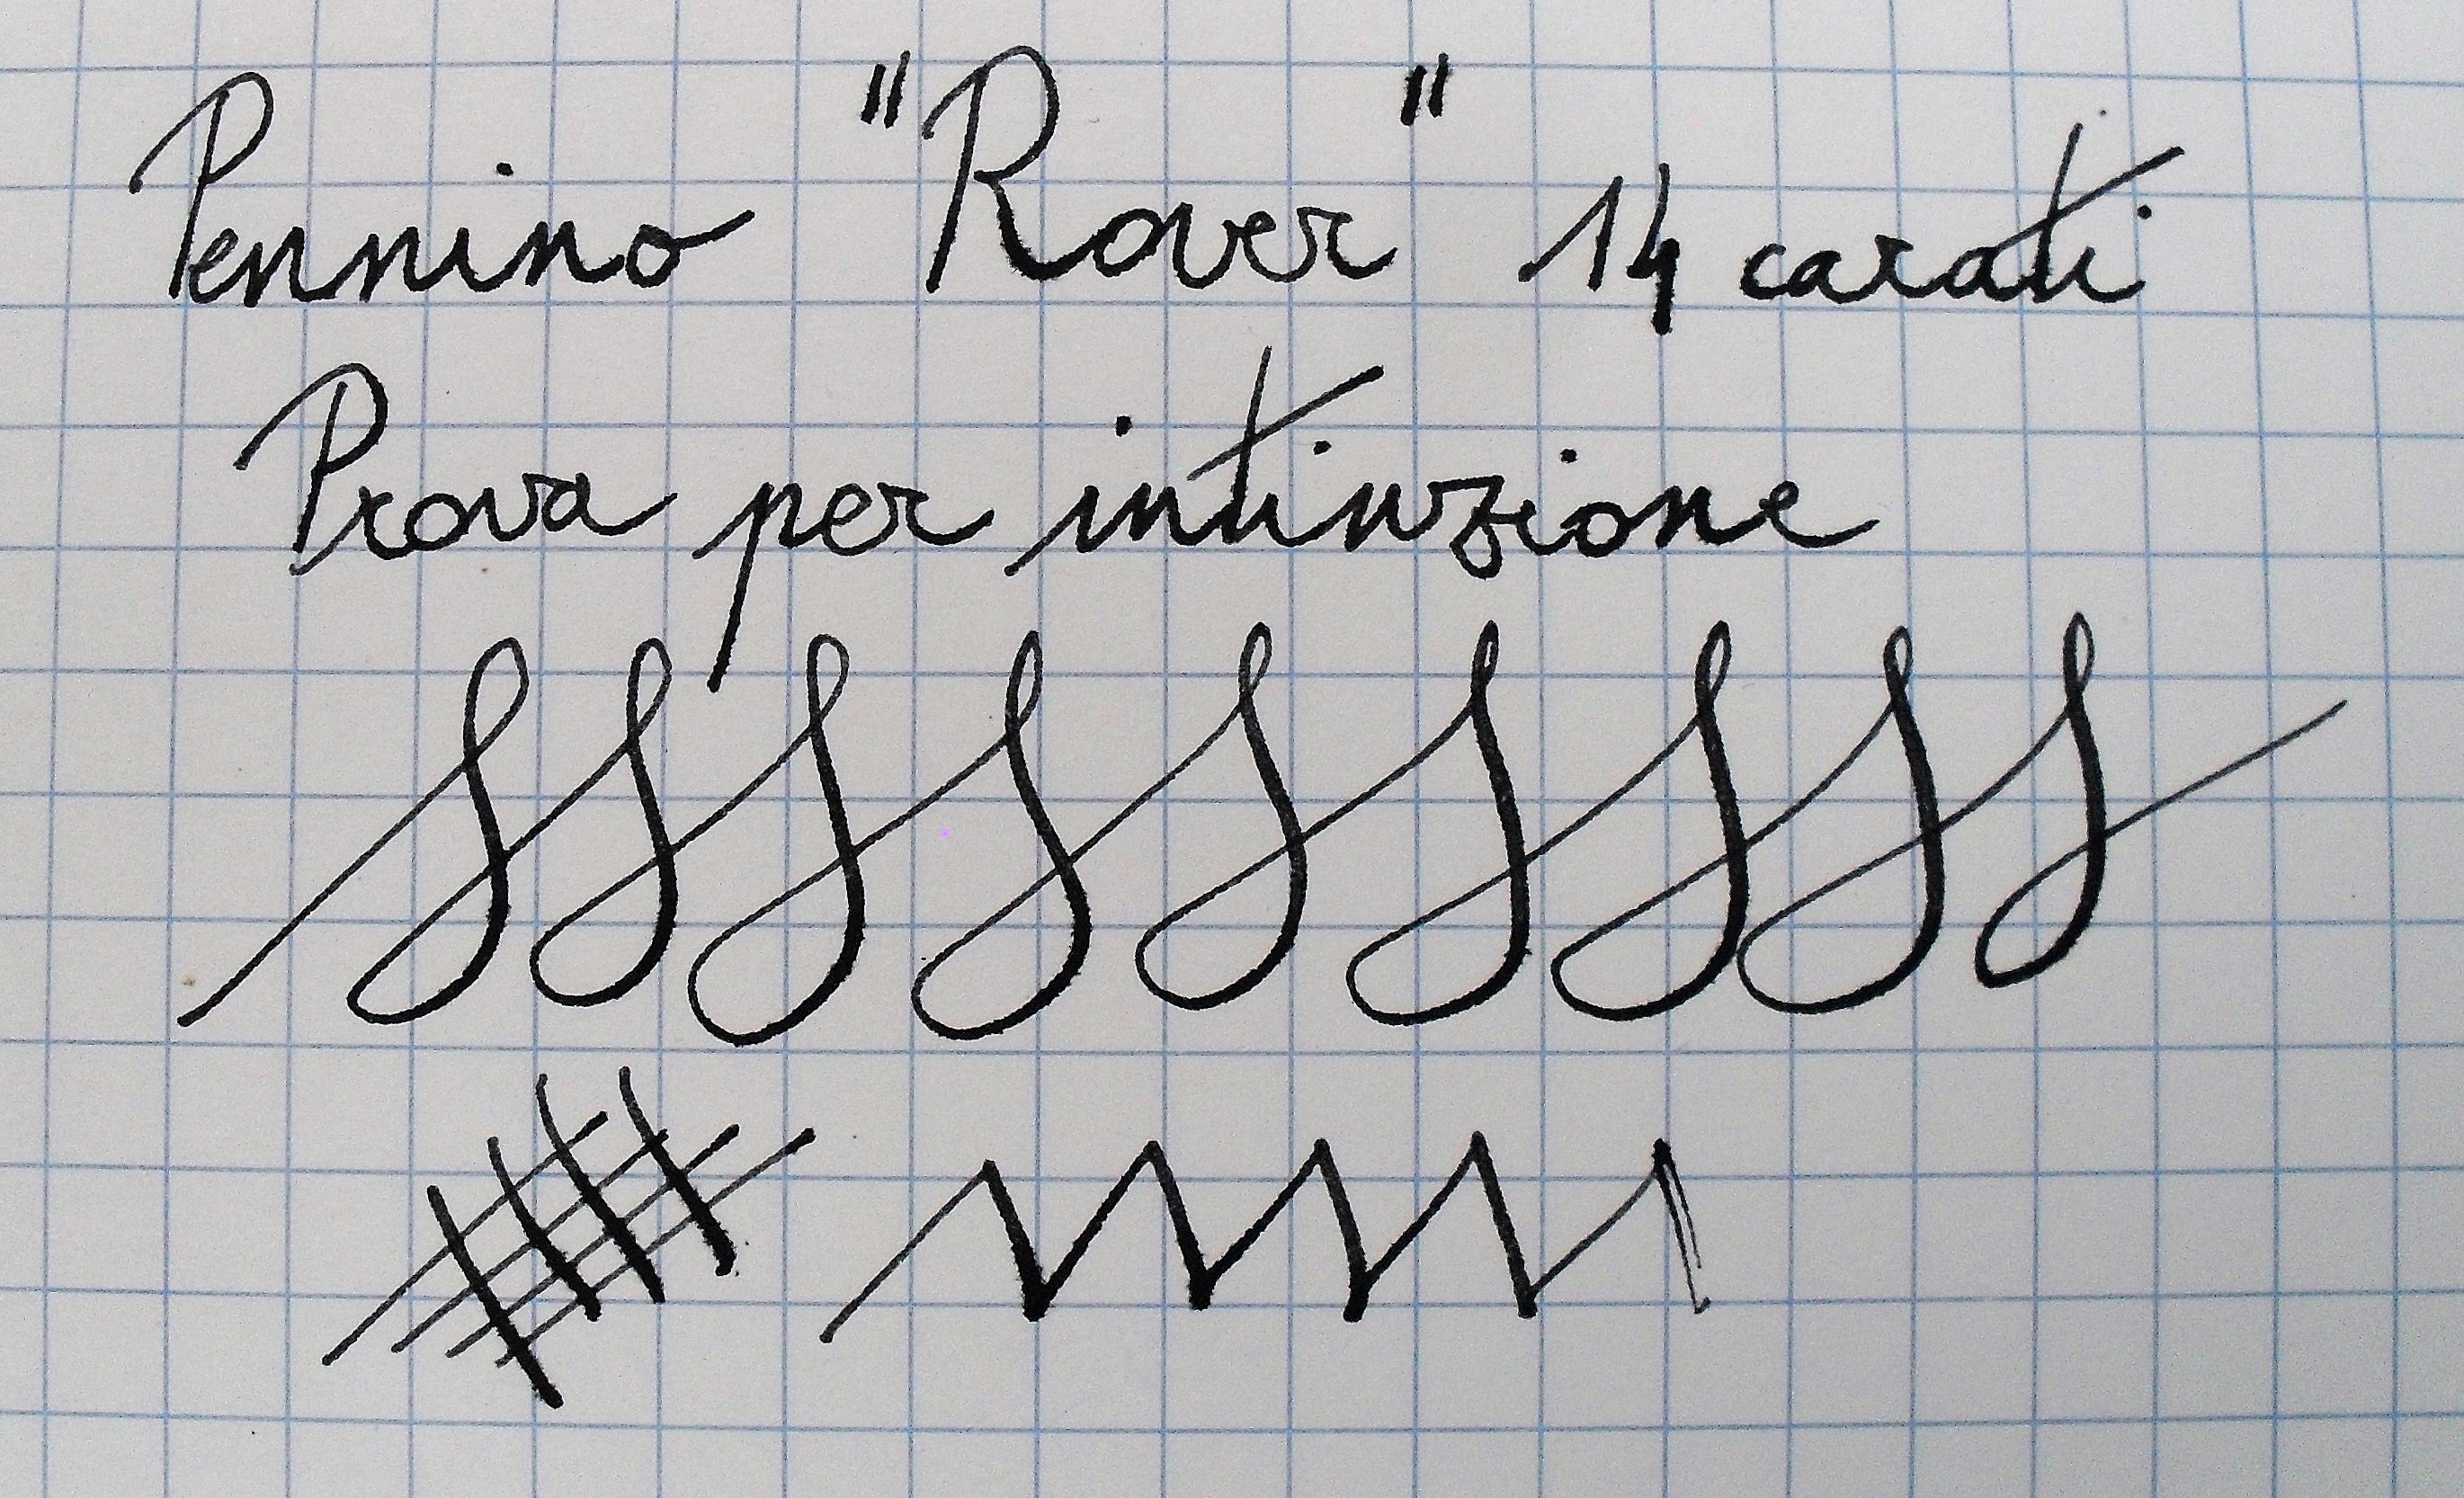 Pennino "Rover" 14 carati
Prova per intinzione